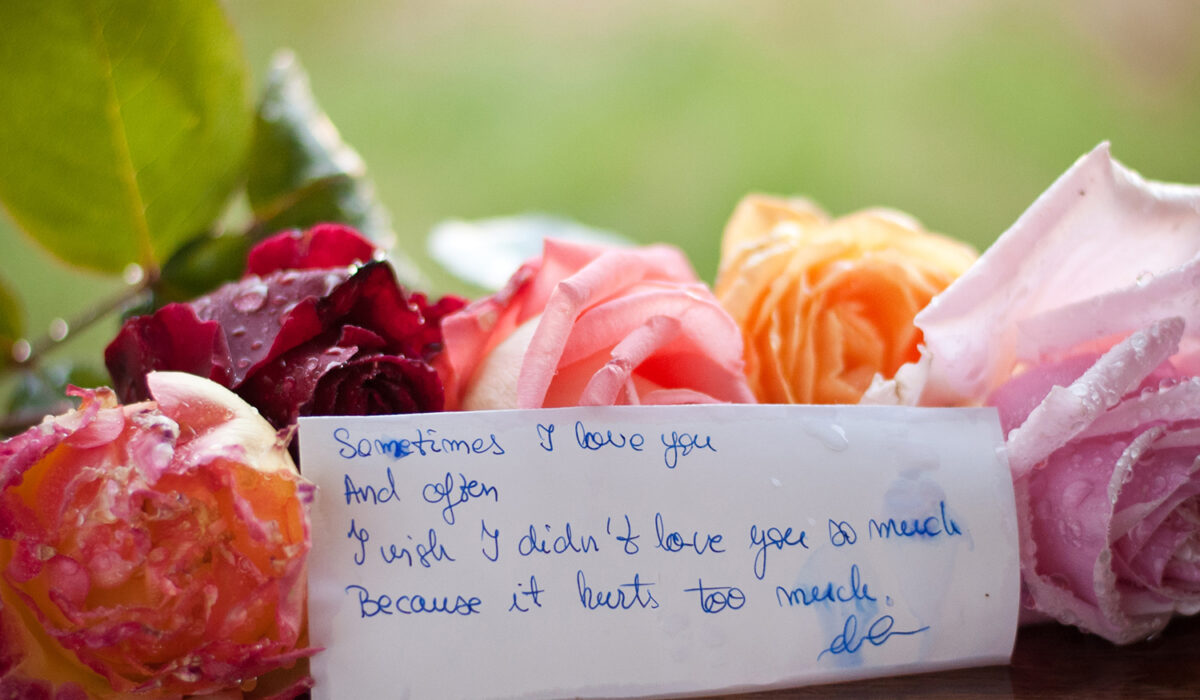 Sometimes I love you
And often
I wish I didn't love you so much
Because it hurts too much.